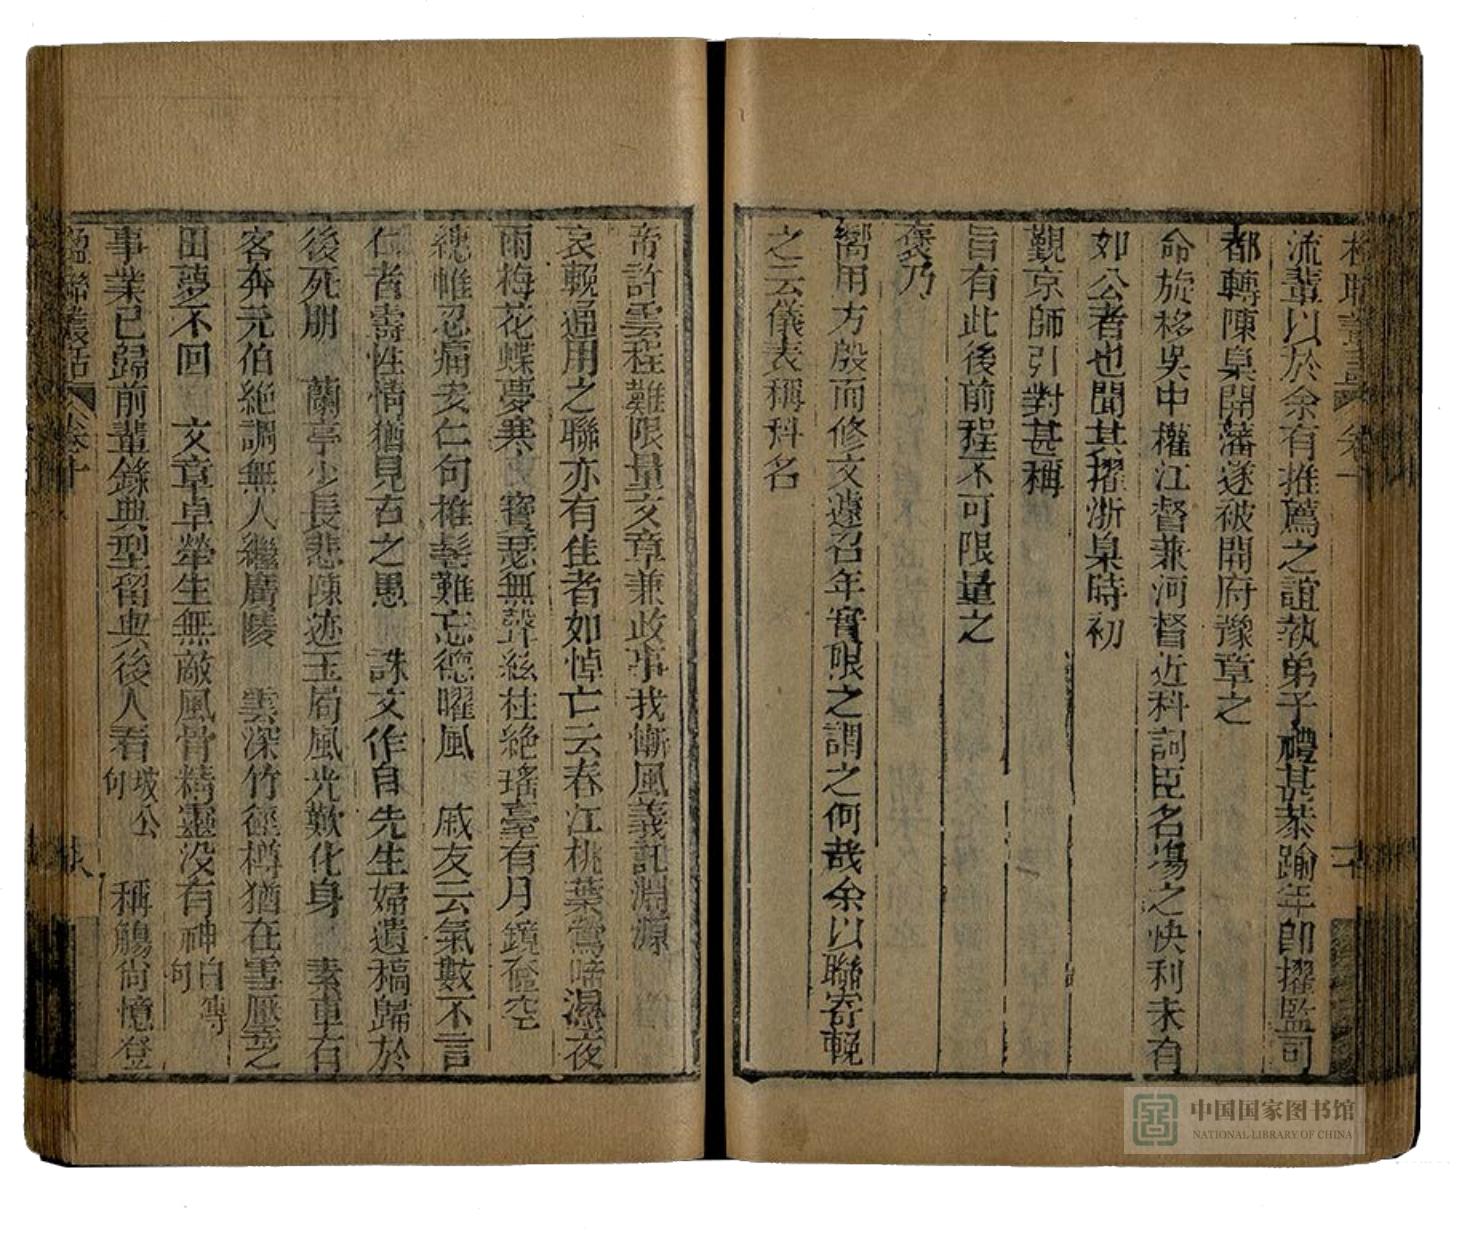 流輩以於余有推薦之誼執弟子禮甚恭踰年卽擢監司
都轉陳臬開藩遂被開府豫章之
命旋移吳中權江督兼河督近科詞臣名場之快利未有
如公者也聞其擢浙臬時初
覲京師引對甚稱
旨有此後前程不可限量之
褒乃
嚮用方殷而修文遽召年實限之謂之何哉余以聯寄輓
之云儀表稱科名
帝許雲程難限量文章兼政事我慚風義託淵源
哀輓通用之聯亦有佳者如悼亡云春江桃葉鶯啼濕夜
雨梅花蝶夢寒 寶瑟無聲絃柱絕瑤臺有月鏡奩空
繐帷忍痛安仁句椎髻難忘德曜風 戚友云氣數不言
仁者壽性情猶見古之愚 誄文作自先生婦遺稿歸於
後死朋 蘭亭少長悲陳迹玉局風光歎化身 素車有
客奔元伯絕調無人繼廣陵 雲深竹徑樽猶在雪壓芝
田夢不回 文章卓犖生無敵風骨精靈没有神白傅句
事業已歸前輩錄典型留與後人看坡公句 稱觴尚憶登
楹聯叢話 卷十
中国国家图书馆
NATIONAL LIBRARY OF CHINA